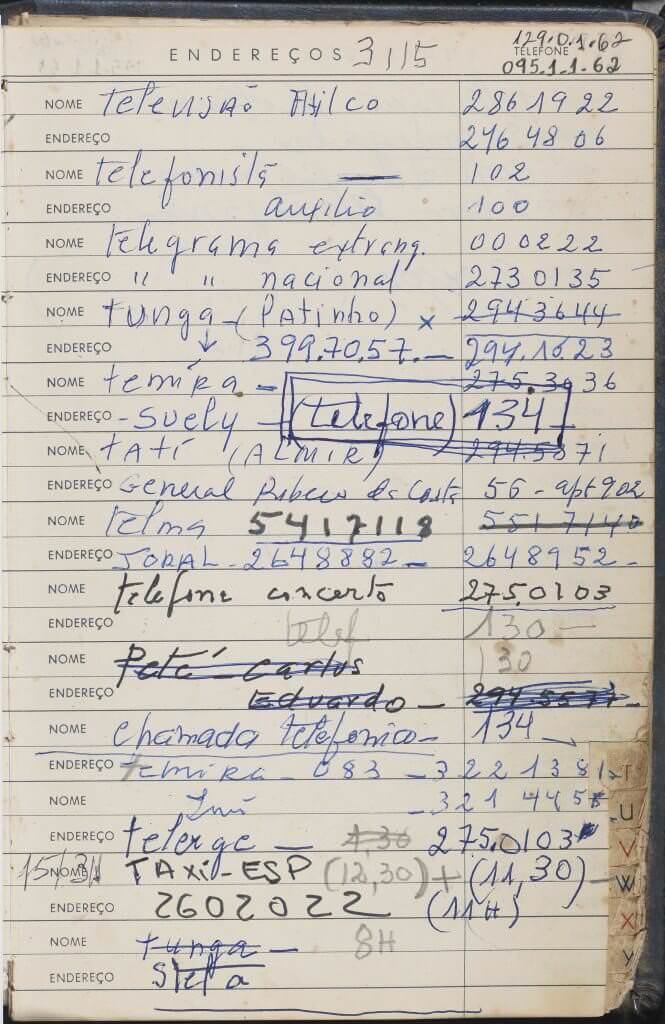 129.0.1.62
ENDEREÇOS 3115 TELEFONE
095.1.1.62
NOME Televisão Philco 2861922
ENDEREÇO 2464806
NOME telefonista — 102
ENDEREÇO auxilio 100
NOME telegrama extrang. 000222
ENDEREÇO " " nacional 2730135
NOME tunga - (Patinho) x 2943644
ENDEREÇO ↓ 399.70.57. - 294.16.23
NOME temira - 275.3036
ENDEREÇO - Suely - (telefone) 134 -
NOME TATÍ (ALMIR) 294.5871
ENDEREÇO General Ribeiro da Costa 56 - apt 902
NOME telma 5417118 5517140
ENDEREÇO JOBAL - 2648882 - 2648952 -
NOME telefone concerto 275.0103
ENDEREÇO telef 130 -
NOME Peté - Carlos 130
ENDEREÇO Eduardo - 294.5577 -
NOME chamada telefonica - 134 -
ENDEREÇO temira - 083 - 3221381 T
NOME - 321445 U
ENDEREÇO telerge - 1,30 275.0103 V
15/3 NOME TAXI-ESP (12,30) + (11,30) - W
ENDEREÇO 2602022 (11H) X
NOME tunga - 8H Y
ENDEREÇO Stela